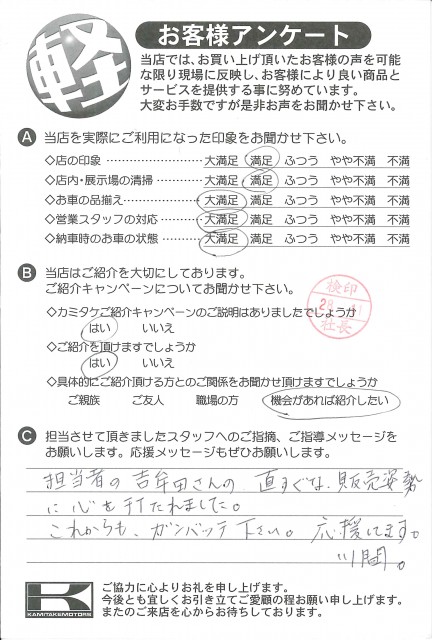 軽
お客様アンケート
当店では、お買い上げ頂いたお客様の声を可能
な限り現場に反映し、お客様により良い商品と
サービスを提供する事に努めています。
大変お手数ですが是非お声をお聞かせ下さい。
A 当店を実際にご利用になった印象をお聞かせ下さい。
◇店の印象 …………………… 大満足 満足 ふつう やや不満 不満
◇店内・展示場の清掃………… 大満足 満足 ふつう やや不満 不満
◇お車の品揃え………………… 大満足 満足 ふつう やや不満 不満
◇営業スタッフの対応………… 大満足 満足 ふつう やや不満 不満
◇納車時のお車の状態………… 大満足 満足 ふつう やや不満 不満
B 当店はご紹介を大切にしております。
ご紹介キャンペーンについてお聞かせ下さい。
検印
社長
◇カミタケご紹介キャンペーンのご説明はありましたでしょうか
はい いいえ
◇ご紹介を頂けますでしょうか
はい いいえ
◇具体的にご紹介頂ける方とのご関係をお聞かせ頂けますでしょうか
ご親族 ご友人 職場の方 機会があれば紹介したい
C 担当させて頂きましたスタッフへのご指摘、ご指導メッセージを
お願いします。応援メッセージもぜひお願いします。
担当者の吉牟田さんの、直すぐな、販売姿勢
に心を打たれました。
これからも、ガンバッテ下さい。応援してます。
川間。
K
KAMITAKEMOTORS
ご協力に心よりお礼を申し上げます。
今後とも宜しくお引き立てご愛顧の程お願い申し上げます。
またのご来店を心からお待ちしております。